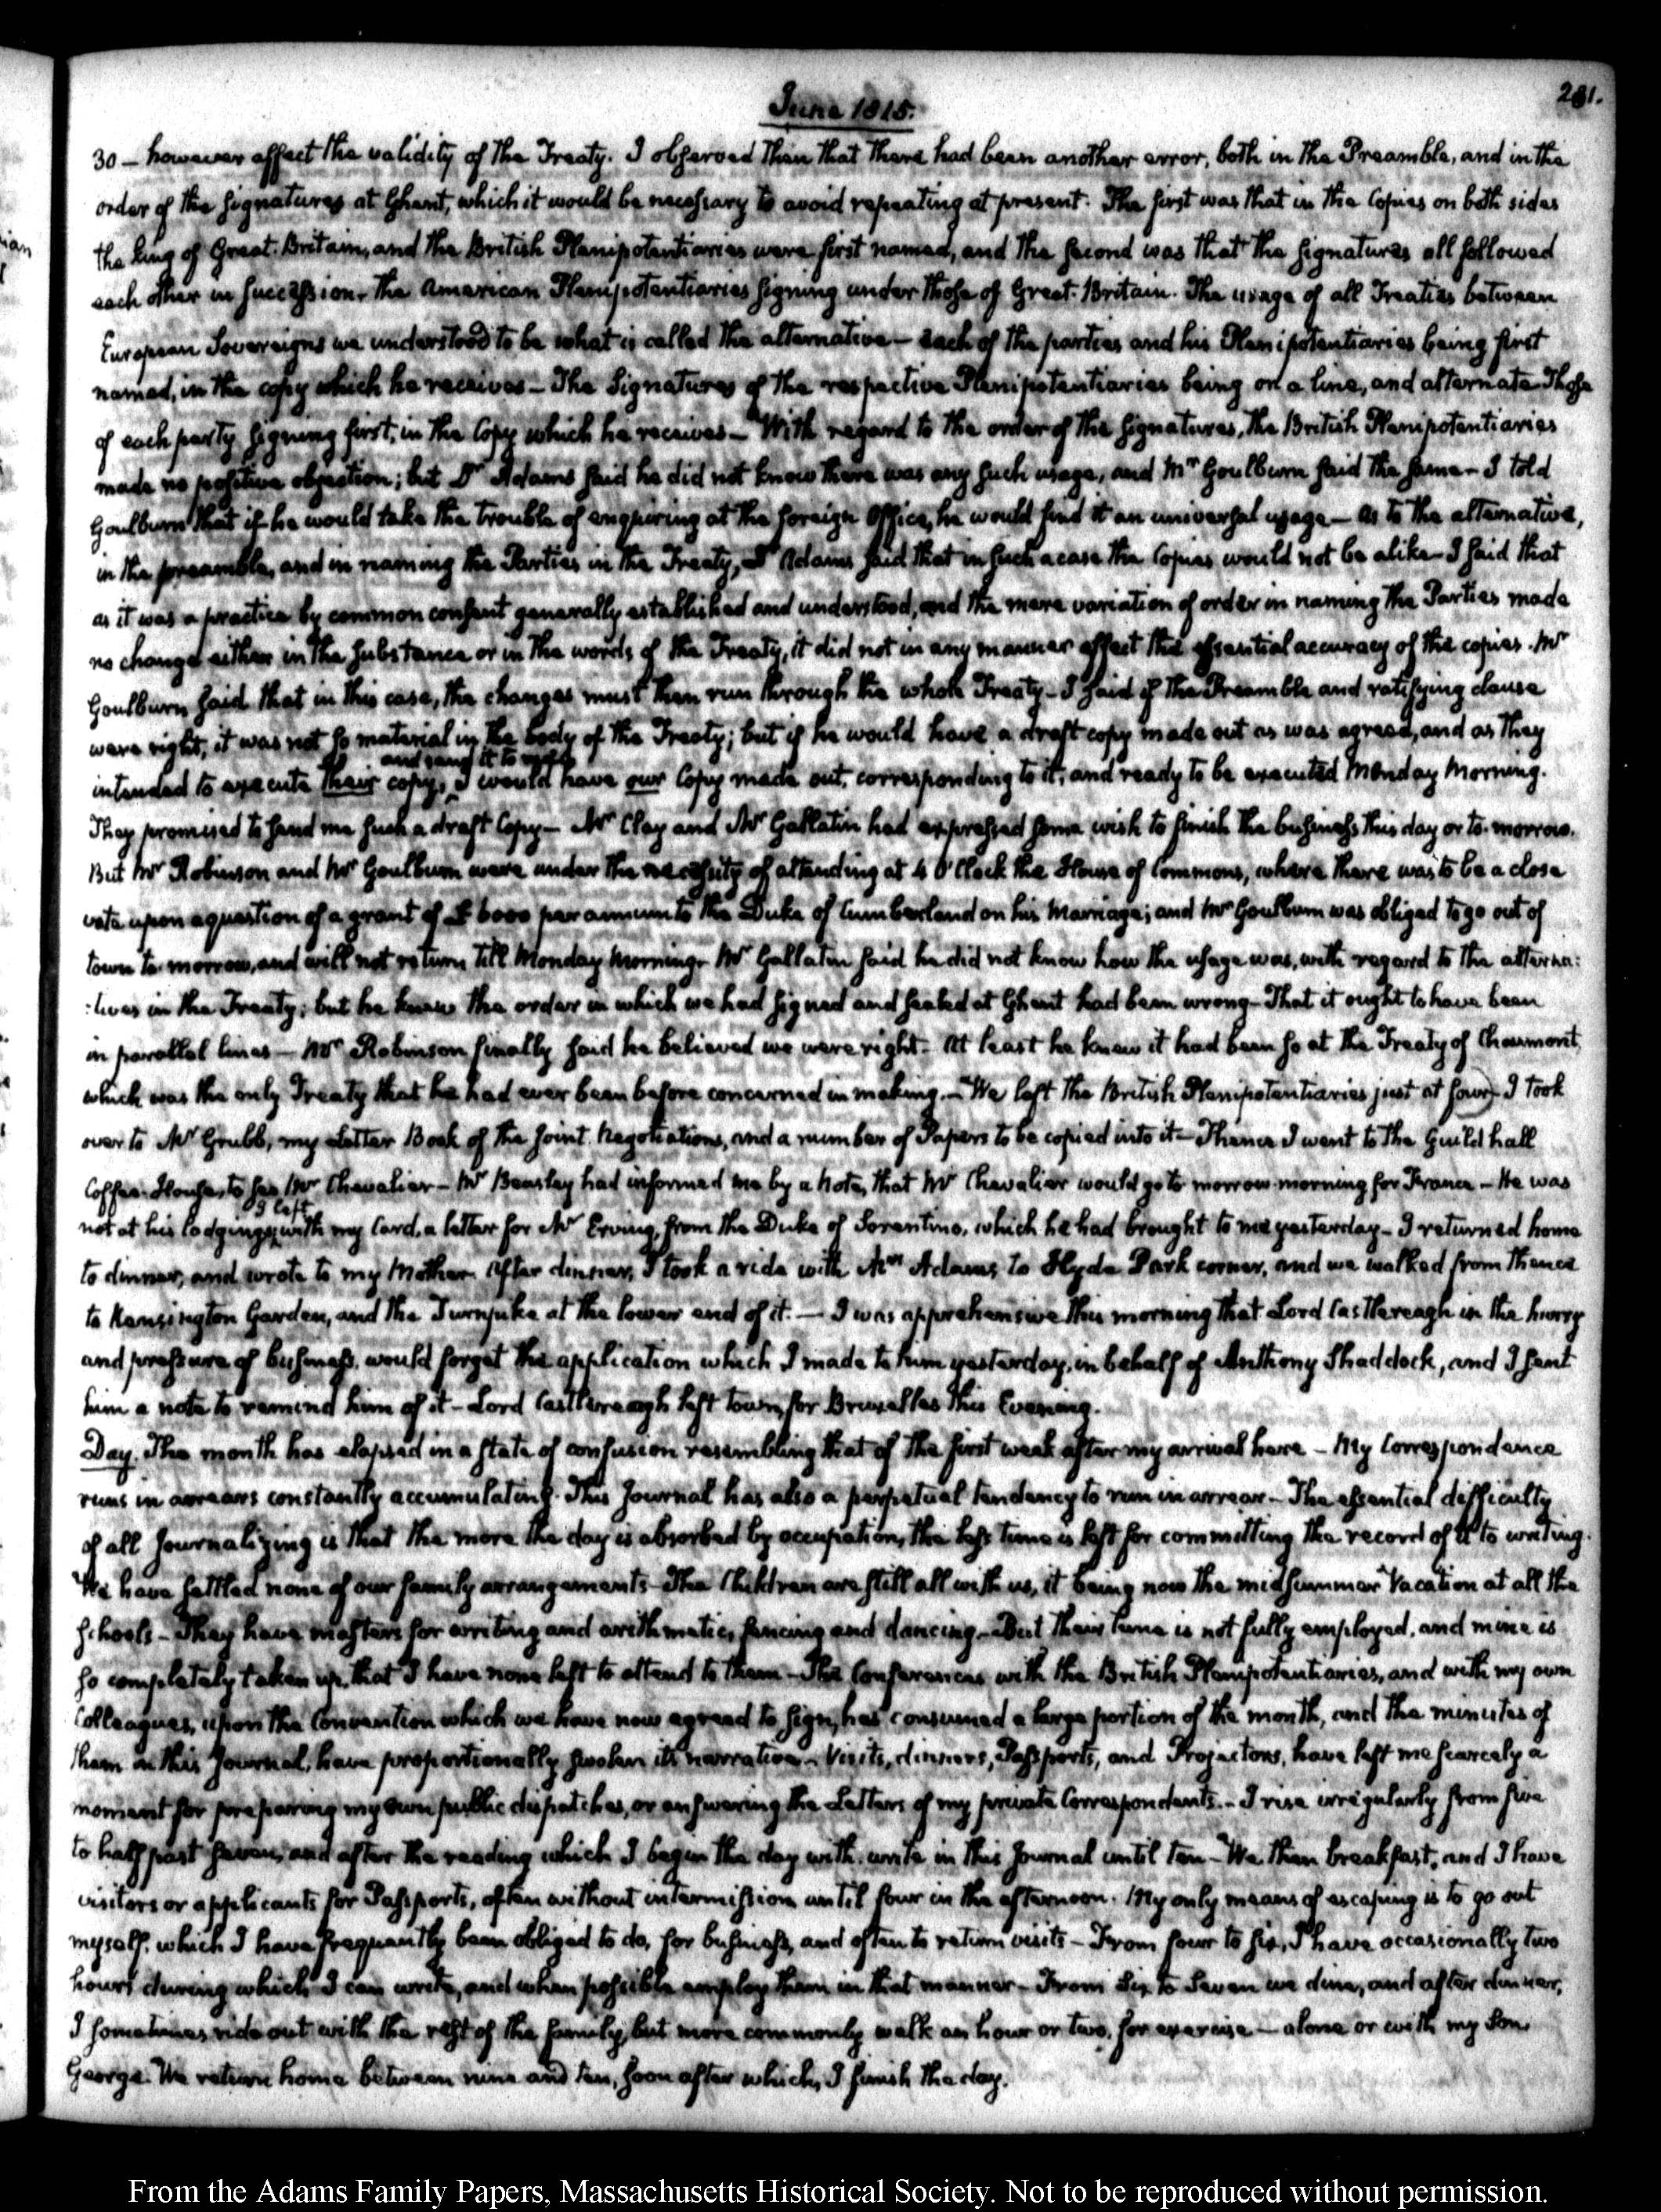 June 1815.
281.
30 – however affect the validity of the Treaty. I observed then that there had been another error, both in the Preamble, and in the
order of the signatures at Ghent, which it would be necessary to avoid repeating at present. The first was that in the Copies on both sides
the king of Great-Britain, and the British Plenipotentiaries were first named, and the second was that the signatures all followed
each other in succession, the American Plenipotentiaries signing under those of Great-Britain. The usage of all Treaties between
European Sovereigns we understood to be what is called the alternative – each of the parties and his Plenipotentiaries being first
named, in the copy which he receives – The Signatures of the respective Plenipotentiaries being on a line, and alternate Those
of each party signing first, in the Copy which he receives – With regard to the order of the signatures, the British Plenipotentiaries
made no positive objection; but Dr Adams said he did not know there was any such usage, and Mr Goulburn said the same – I told
Goulburn that if he would take the trouble of enquiring at the foreign Office, he would find it an universal usage – As to the alternative,
in the preamble, and in naming the Parties in the Treaty, Dr Adams said that in such a case the Copies would not be alike – I said that
as it was a practice by common consent generally established and understood, and the mere variation of order in naming the Parties made
no change either in the substance or in the words of the Treaty, it did not in any manner affect the essential accuracy of the copies. Mr
Goulburn said that in this case, the changes must then run through the whole Treaty – I said if the Preamble and ratifying clause
were right, it was not so material in the body of the Treaty; but if he would have a draft copy made out as was agreed, and as they
and send it to me
intended to execute their copy, I would have our Copy made out, corresponding to it, and ready to be executed Monday Morning.
They promised to send me such a draft Copy – Mr Clay and Mr Gallatin had expressed some wish to finish the business this day or to-morrow.
But Mr Robinson and Mr Goulburn were under the necessity of attending at 4 O'Clock the House of Commons, where there was to be a close
vote upon a question of a grant of £6000 per annum to the Duke of Cumberland on his Marriage; and Mr Goulburn was obliged to go out of
town to-morrow, and will not return till Monday Morning. Mr Gallatin said he did not know how the usage was, with regard to the alterna:
:tives in the Treaty; but he knew the order in which we had signed and sealed at Ghent had been wrong – That it ought to have been
in parallel lines – Mr Robinson finally said he believed we were right – At least he knew it had been so at the Treaty of Chaumont,
which was the only Treaty that he had ever been before concerned in making. – We left the British Plenipotentiaries just at four – I took
over to Mr Grubb, my Letter Book of the joint Negotiations, and a number of Papers to be copied into it – Thence I went to the Guildhall
Coffee-House, to see Mr Chevalier – Mr Beasley had informed me by a Note, that Mr Chevalier would go to-morrow morning for France – He was
I left
not at his lodgings, with my Card, a letter for Mr Erving, from the Duke of Sorentino, which he had brought to me yesterday – I returned home
to dinner, and wrote to my Mother. After dinner, I took a ride with Mrs Adams to Hyde Park corner, and we walked from thence
to Kensington Garden, and the Turnpike at the lower end of it. – I was apprehensive this morning that Lord Castlereagh in the hurry
and pressure of business, would forget the application which I made to him yesterday, in behalf of Anthony Shaddock, and I sent
him a note to remind him of it – Lord Castlereagh left town for Bruxelles this Evening.
Day. The month has elapsed in a state of confusion resembling that of the first week after my arrival here – My Correspondence
runs in arrears constantly accumulating. This Journal has also a perpetual tendency to run in arrear – The essential difficulty
of all Journalizing is that the more the day is absorbed by occupation, the less time is left for committing the record of it to writing.
We have settled none of our family arrangements – The Children are still all with us, it being now the midsummer Vacation at all the
schools – They have masters for writing and arithmetic, fencing and dancing, – But their time is not fully employed, and mine is
so completely taken up, that I have none left to attend to them – The Conferences with the British Plenipotentiaries, and with my own
Colleagues, upon the Convention which we have now agreed to sign, has consumed a large portion of the month, and the minutes of
them in this Journal, have proportionally swoln its narrative – Visits, dinners, Passports, and Projectors, have left me scarcely a
moment for preparing my own public dispatches, or answering the Letters of my private Correspondents. – I rise irregularly from five
to half past seven, and after the reading which I begin the day with, write in this Journal until ten – We then breakfast, and I have
visitors or applicants for Passports, often without intermission until four in the afternoon. My only means of escaping is to go out
myself, which I have frequently been obliged to do, for business, and often to return visits – From four to six, I have occasionally two
hours during which I can write, and when possible employ them in that manner – From Six to Seven we dine, and after dinner,
I sometimes ride out with the rest of the family, but more commonly walk an hour or two, for exercise – alone or with my Son
George. We return home between nine and ten, soon after which, I finish the day.
From the Adams Family Papers, Massachusetts Historical Society. Not to be reproduced without permission.